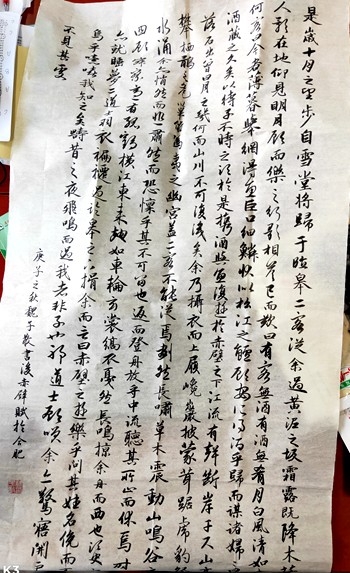 是歲十月之望步自雪堂將歸于臨皋二客從余過黃泥之坂霜露既降木葉
人影在地仰見明月顧而樂之行歌相答已而歎曰有客無酒有酒無肴月白風清如
何客曰今者薄暮舉網得魚巨口細鱗狀似松江之鱸顧安所得酒乎歸而謀諸婦
酒藏之久矣以待子不時之須於是攜酒與魚復遊於赤壁之下江流有聲斷岸千尺山
落石出曾日月之幾何而山川不可復識矣余乃攝衣而上履巉巖披蒙茸踞虎豹
攀栖鶻之危巢俯馮夷之幽宮蓋二客不能從焉劃然長嘯草木震動山鳴谷
水涌余亦悄然而悲肅然而恐懍乎其不可留也返而登舟放乎中流聽其所止而休焉時
四顧寂寥適有孤鶴橫江東來翅如車輪玄裳縞衣戛然長鳴掠余舟而西也須臾
亦就睡夢二道士羽衣蹁躚過臨皋之下揖余而言曰赤壁之遊樂乎問其姓名俛而
嗚呼噫嘻我知之矣疇昔之夜飛鳴而過我者非子也邪道士顧笑余亦驚寤開戶
不見其處
庚子之秋魏子散書後赤壁賦於合肥
K3